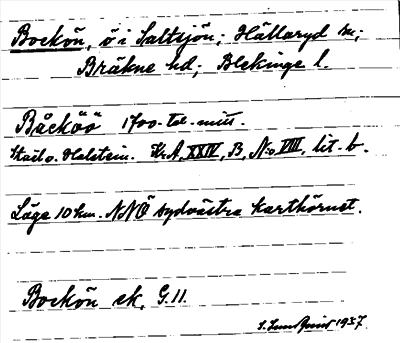 Bockön, ö i Saltsjön; Hällaryd sn;
Bräkne hd; Blekinge l.
Båcköö 1700-tal-mitt.
Stael v. Holstein. Kr.A, XXIV, B, N:o VIII, lit. b.
Läge 10 km. NNÖ sydvästra karthörnet.
Bockön ek. G. 11.
S. Lundquist 1937.